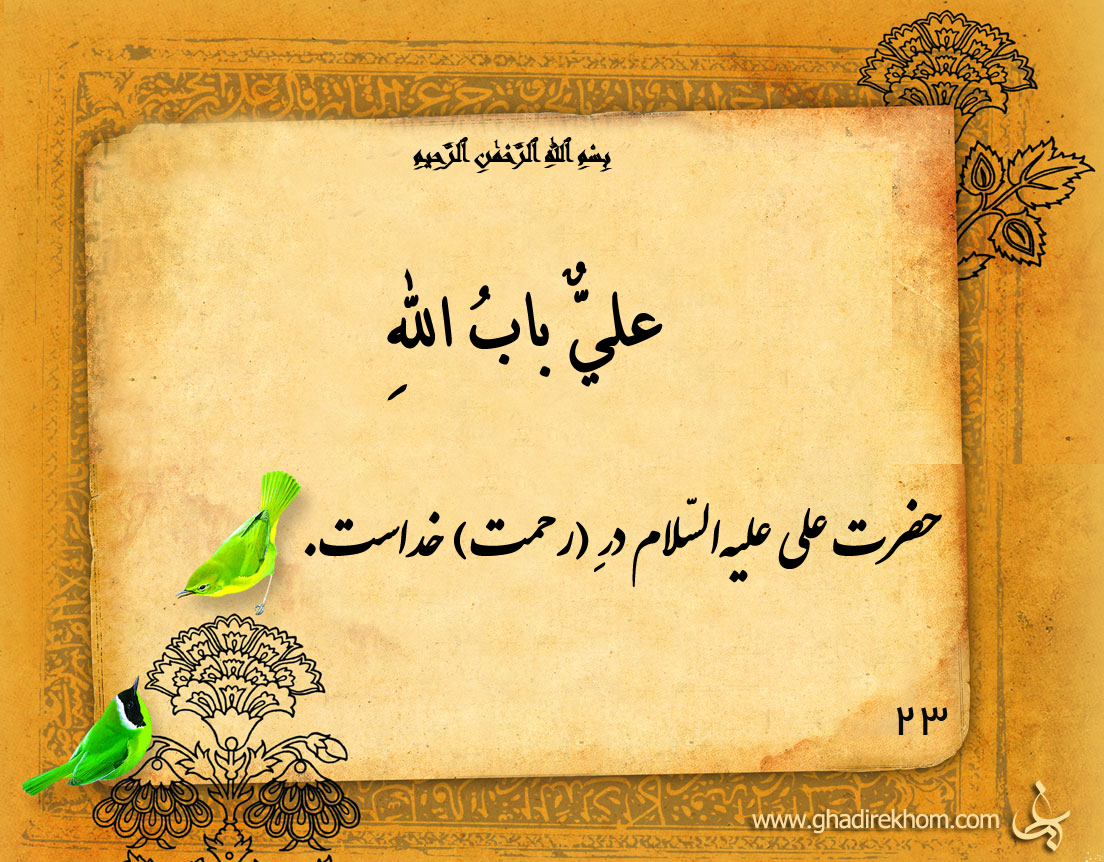 بِسْمِ اللهِ الرَّحْمٰنِ الرَّحِیمِ
عليٌّ بابُ اللهِ
حضرت علی علیه‌السّلام درِ (رحمت) خداست.
۲۳
www.ghadirekhom.com